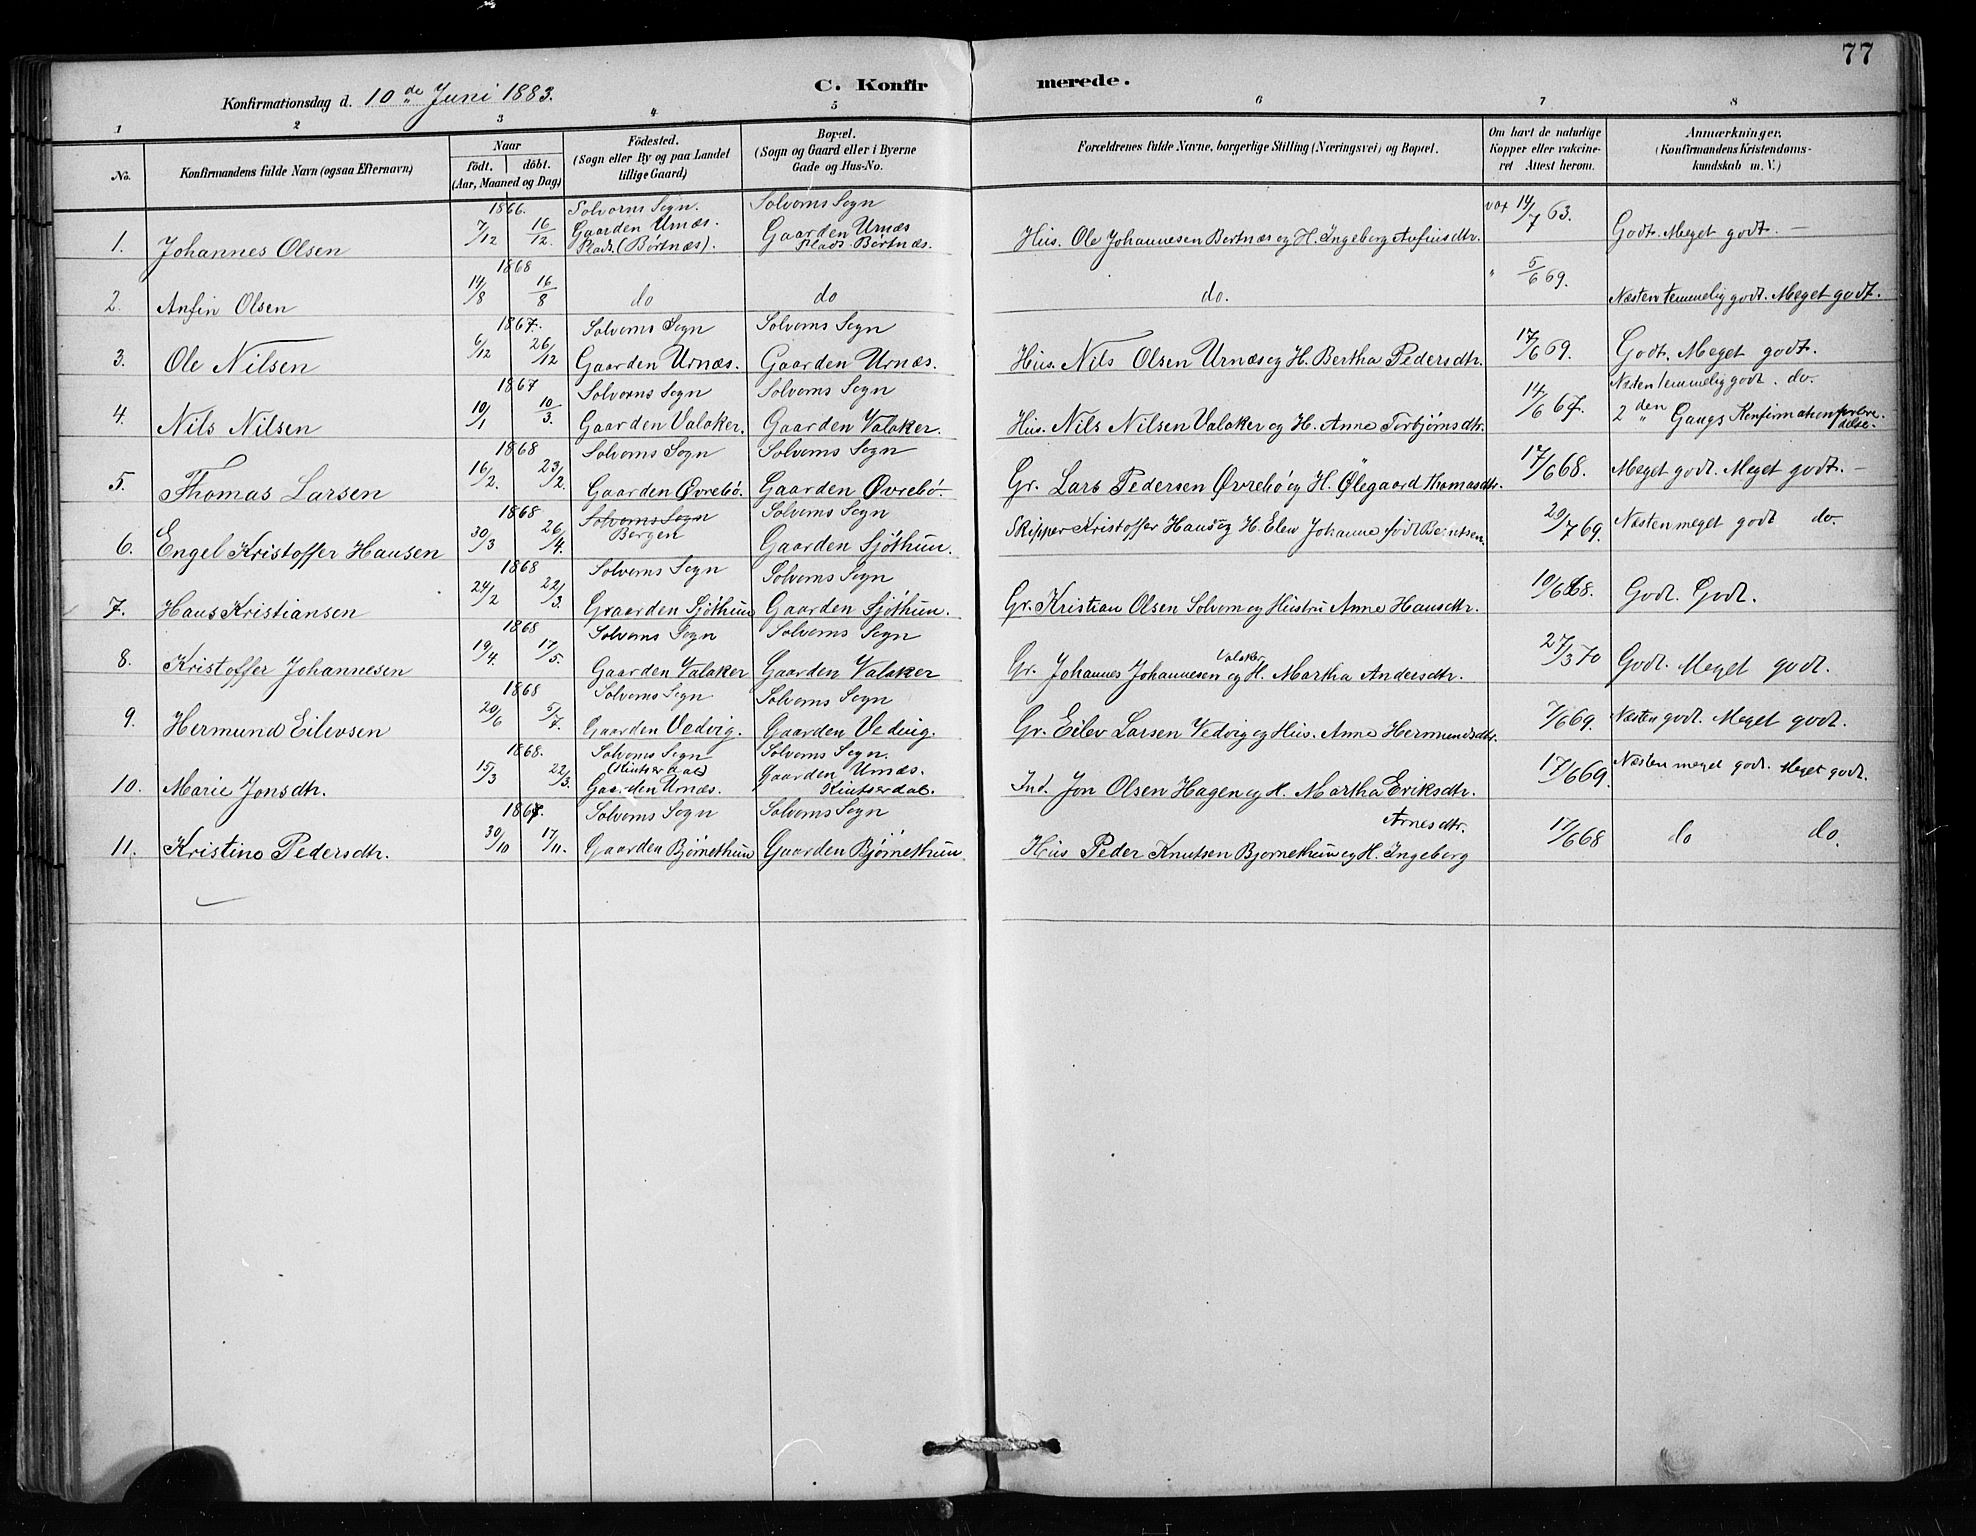 77
C. Konfirmerede.
Konfirmationsdag d. 10de Juni 1883.
1 2 3 4 5 6 7 8
No. Konfirmandens fulde Navn (ogsaa Efternavn) Naar født. døbt. (Aar, Maaned og Dag) Fødested. (Sogn eller By og paa Landet tillige Gaard) Bopæl. (Sogn og Gaard eller i Byerne Gade og Hus-No. Forældrenes fulde Navne, borgerlige Stilling (Næringsvei) og Bopæl. Om havt de naturlige Kopper eller vakcineret Attest herom. Anmærkninger. (Konfirmandens Kristendomskundskab m. V.)
1. Johannes Olsen 1866. 7/12 16/12. Solvorns Sogn. Gaarden Urnæs. Plads. (Børtnæs). Solvorns Sogn Gaarden Urnæs Plads Børtnæs. Hus. Ole Johannesen Bertnæs og H. Ingeborg Anfinsdtr. vax 14/7 63. Godt. Meget godt. —
2. Anfin Olsen 1868 14/8 16/8 do do do. " 5/6 69. Næsten temmelig godt. Meget godt.
3. Ole Nilsen 1867. 6/12 26/12 Solvorns Sogn Gaarden Urnæs. Solvorns Sogn Gaarden Urnæs. Hus. Nils Olsen Urnæs og H. Bertha Pedersdtr. 17/6 69. Godt. Meget godt.
4. Nils Nilsen 1867 10/1 10/3. Solvorns Sogn Gaarden Valaker. Solvorns Sogn Gaarden Valaker. Hus. Nils Nilsen Valaker og H. Anna Torbjørnsdtr. 14/6 67. Næsten temmelig godt. do. 2den Gangs Konfirmationsforberedelse.
5. Thomas Larsen 1868 16/2. 23/2. Solvorns Sogn Gaarden Øvrebø. Solvorns Sogn Gaarden Øvrebø. Gr. Lars Pedersen Øvrebø og H. Ølegaard Thomasdtr. 17/6 68. Meget godt. Meget godt. —
6. Engel Kristoffer Hansen 1868 30/3 26/4. Solvorns Sogn Bergen Solvorns Sogn Gaarden Sjøthun. Skipper Kristoffer Hans og H. Elen Johanne født Berntsen. 20/7 69. Næsten meget godt do.
7. Hans Kristiansen 1868 24/2 22/3. Solvorns Sogn Gaarden Sjøthun Solvorns Sogn Gaarden Sjøthun. Gr. Kristian Olsen Solvorn og Hustru Anna Hansdtr. 10/6 68. Godt. Godt.
8. Kristoffer Johannesen 1868 19/4. 17/5. Solvorns Sogn Gaarden Valaker Solvorns Sogn Gaarden Valaker Gr. Johannes Johannesen Valaker og H. Martha Andersdtr. 27/3 70 Godt. Meget godt.
9. Hermund Eilevsen 1868 20/6 5/7. Solvorns Sogn Gaarden Vedvig. Solvorns Sogn Gaarden Vedvig. Gr. Eilev Larsen Vedvig og Hus. Anna Hermundsdtr. 7/6 69. Næsten godt. Meget godt.
10. Marie Jonsdtr. 1868. 15/3 22/3. Solvorns Sogn (Kintserdal) Gaarden Urnæs. Solvorns Sogn. Gaarden Urnæs. Kintserdal. Ind. Jon Olsen Hagen og H. Martha Eriksdtr. 17/6 69. Næsten meget godt. Meget godt.
11. Kristine Pedersdtr. 1867. 30/10 17/11. Solvorns Sogn Gaarden Bjørnethun Solvorns Sogn Gaarden Bjørnethun. Hus Peder Knutsen Bjørnethun og H. Ingeborg Arnesdtr. 17/6 68 do do.